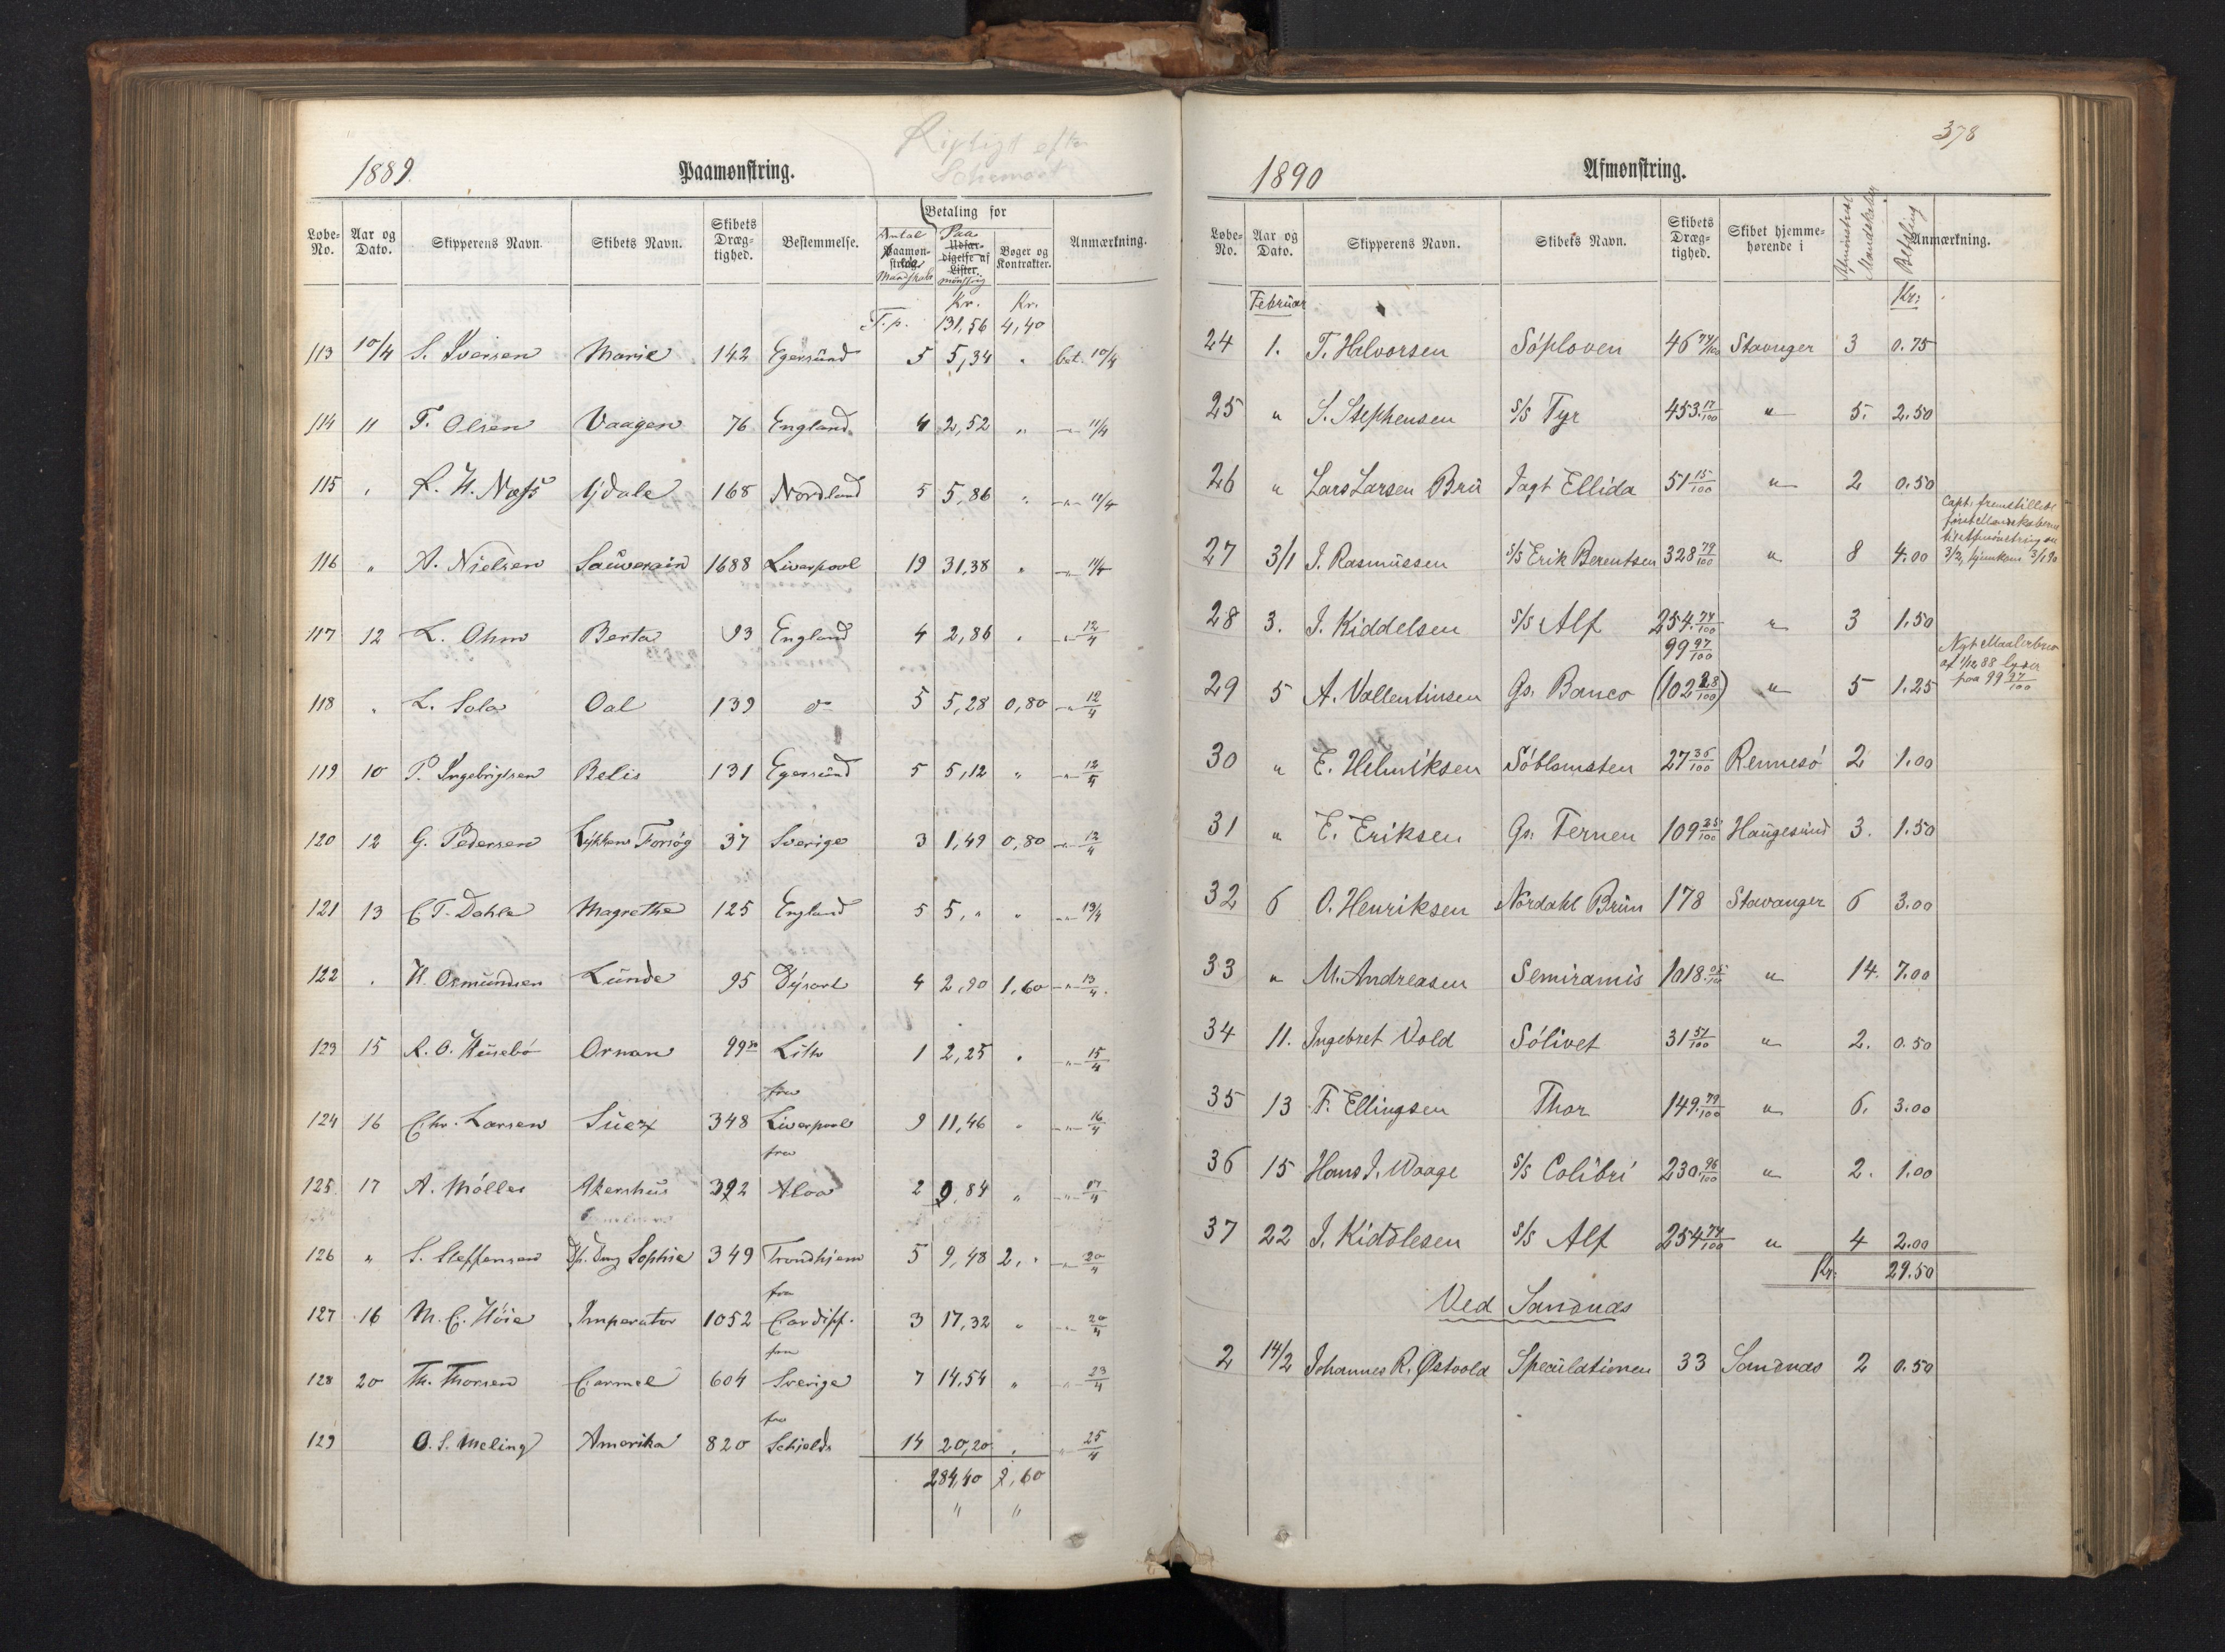 1889.
Paamønstring.
Rigtigt efter
Schemaet
Løbe-No.
Aar og Dato.
Skipperens Navn.
Skibets Navn.
Skibets Dræg-tighed.
Bestemmelse.
Antal Paamon-strede Mandskab
Betaling for
Paa Udfær-digelse af Lister. mønstring
Bøger og Kontrakter.
Anmærkning.
Kr. Kr.
T.p. 131,56 4,40
113 10/4 S. Iversen Marie 142 Egersund 5 5,34 " bet. 10/4
114 11 T. Olsen Vaagen 76 England 4 2,52 " -"- 11/4
115 " R. H. Næss Ydale 168 Nordland 5 5,86 " -"- 12/4
116 " A. Nielsen Sauverain 1688 Liverpool 19 31,38 " -"- 11/4
117 12 L. Ohm Berta 93 England 4 2,86 " -"- 12/4
118 " L. Sola Oal 139 do 5 5,28 0,80 -"- 12/4
119 10 P. Ingebrigtsen Belis 131 Egersund 5 5,12 " -"- 12/4
120 12 G. Pedersen Lykkens Forsøg 37 Sverige 3 1,49 0,80 -"- 12/4
121 13 C. T. Dahle Magrethe 125 England 5 5," " -"- 13/4
122 " H. Osmundsen Lunde 95 Dysart 4 2,90 1,60 -"- 13/4
123 15 R. O. Husebö Ornan 99 80 Lith 1 2,25 " -"- 15/4
fra
124 16 Chr. Larsen Suez 348 Liverpool 9 11,46 " -"- 16/4
fra
125 17 A. Möller Akershus 392 Aloa 2 9,84 " -"- 17/4
126 " S. Steffensen Dp. Drng Sophie 349 Trondhjem 5 9,48 2," -"- 20/4
fra
127 16 M. C. Höie Imperator 1052 Cardiff. 3 17,32 " -"- 20/4
fra
128 20 Th. Thorsen Carmel 604 Sverige 7 14,54 " -"- 23/4
fra
129 O. S. Meling Amerika 820 Schields 14 20,20 " " 25/4
284,40 9,60
" "
378
1890
Afmønstring.
Løbe-No.
Aar og Dato.
Skipperens Navn.
Skibets Navn.
Skibets Dræg-tighed.
Skibet hjemme-hørende i
Afmønstrede Mandskaber
Betaling
Anmærkning.
Februar Kr:
24 1. T. Halvorsen Söploven 46 74/100 Stavanger 3 0.75
25 " S. Stephensen S/S Tyr 453. 17/100 " 5. 2.50
26 " Lars Larsen Bru Jagt Ellida 51 15/100 " 2 0.50
Capt. fremstillede
först Mandskaberne
til afmönstring
3/2, hjemkom 3/1 90
27 3/1 J. Rasmussen S/S Erik Berentsen 328 79/100 " 8 4.00
28 3. J. Kiddelsen S/S Alf 254. 74/100 " 3 1.50
99 97/100
Nyt Maalerbrev
af 1/12 88 lyder
paa 99 97/100
29 5 A. Vallentinsen Gs. Banco (102 28/100) " 5 1.25
30 " E. Helmiksen Söblomsten 27 36/100 Rennesö 2 1.00
31 " E. Eriksen Gs. Ternen 109 25/100 Haugesund 3. 1.50
32 6 O. Henriksen Nordahl Brun 178 Stavanger 6 3.00
33 " M. Andreasen Semiramis 1018. 05/10 " 14. 7.00
34 11. Ingebret Vold Sölivet 31 51/100 " 2. 0.50
35 13 F. Ellingsen Thor 149. 79/100 " 6. 3.00
36 15 Hans J. Waage S/S Colibri 230. 96/100 " 2. 1.00
37 22 J. Kiddlesen S/S Alf 254 74/100 " 4 2.00
Kr: 29.50
Ved Sandnæs
2 14/2 Johannes R. Østvold Speculationen 33 Sandnæs 2 0.50